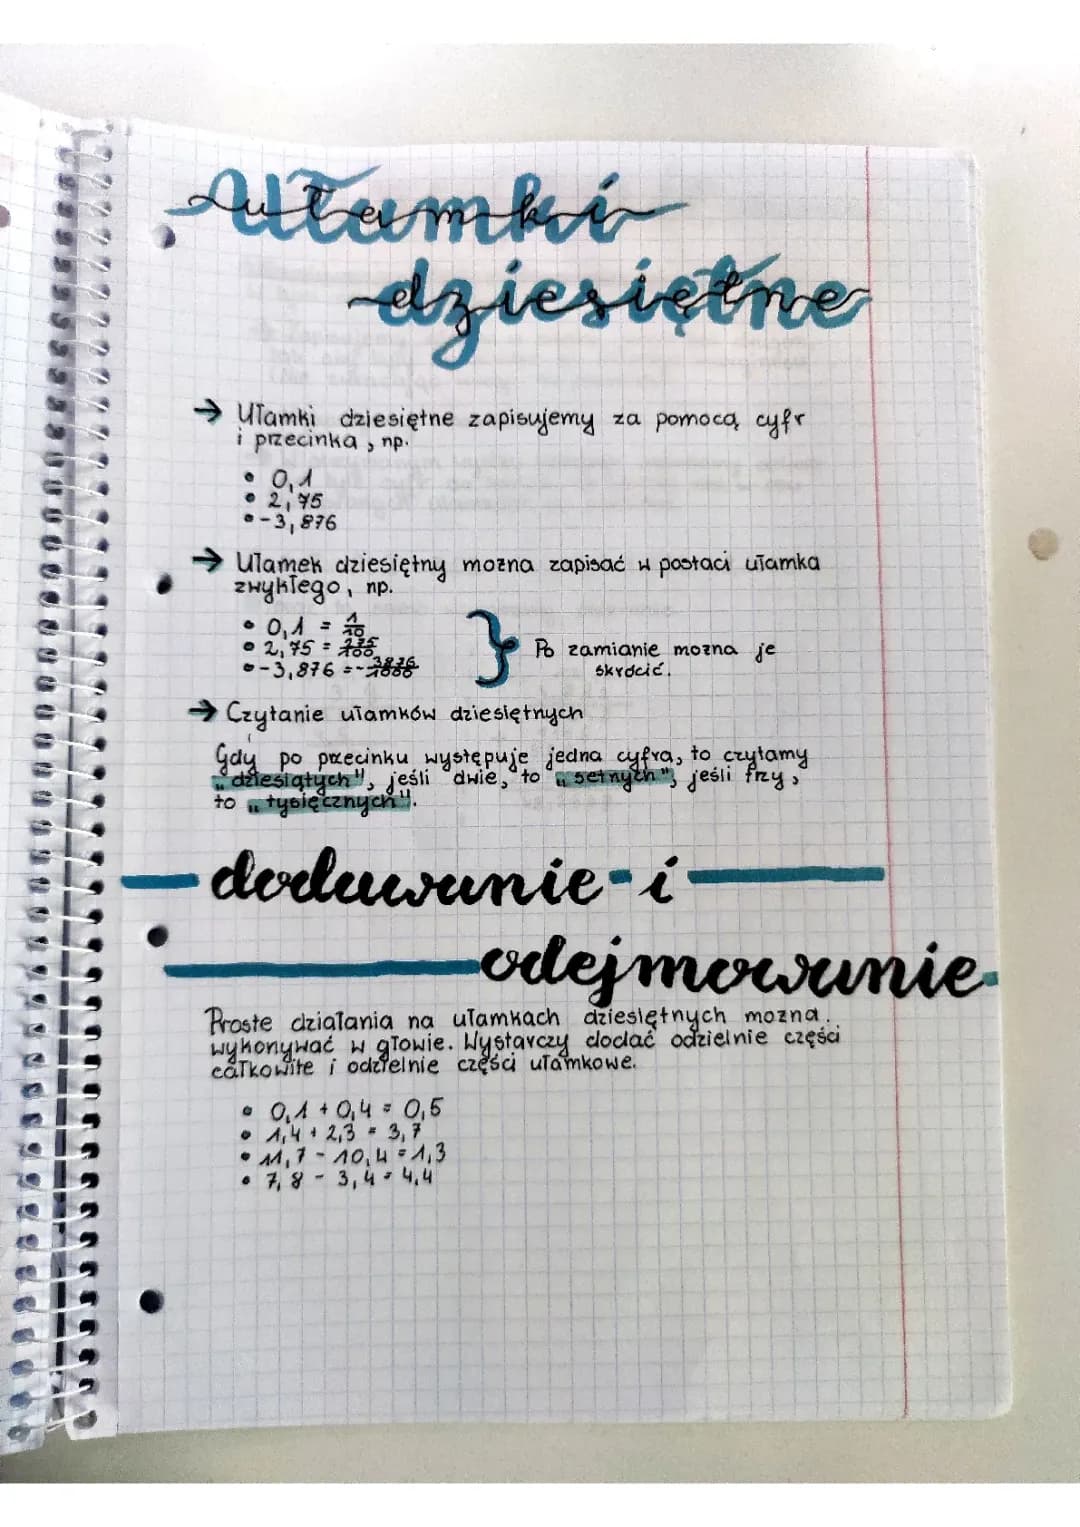 Ułamki
dziesiętne
→ Ułamki dziesiętne zapisujemy za pomocą cyfr
i przecinka, np.
• 0,1
• 2,75
• -3,876
→ Ułamek dziesiętny można zapisać w postaci ułamka
zwykłego, np.
• 0,1 = 1/10
• 2,75 = 275/100
• -3,876 = -3876/1000
} Po zamianie można je
skrócić.
→ Czytanie ułamków dziesiętnych
Gdy po przecinku występuje jedna cyfra, to czytamy
„dziesiątych", jeśli dwie, to „setnych", jeśli trzy,
to „tysięcznych".
dodawanie i
odejmowanie
Proste działania na ułamkach dziesiętnych można
wykonywać w głowie. Wystarczy dodać odzielnie części
całkowite i odzielnie części ułamkowe.
• 0,1 + 0,4 = 0,5
• 1,4 + 2,3 = 3,7
• 11,7 - 10,4 = 1,3
• 7,8 - 3,4 = 4,4